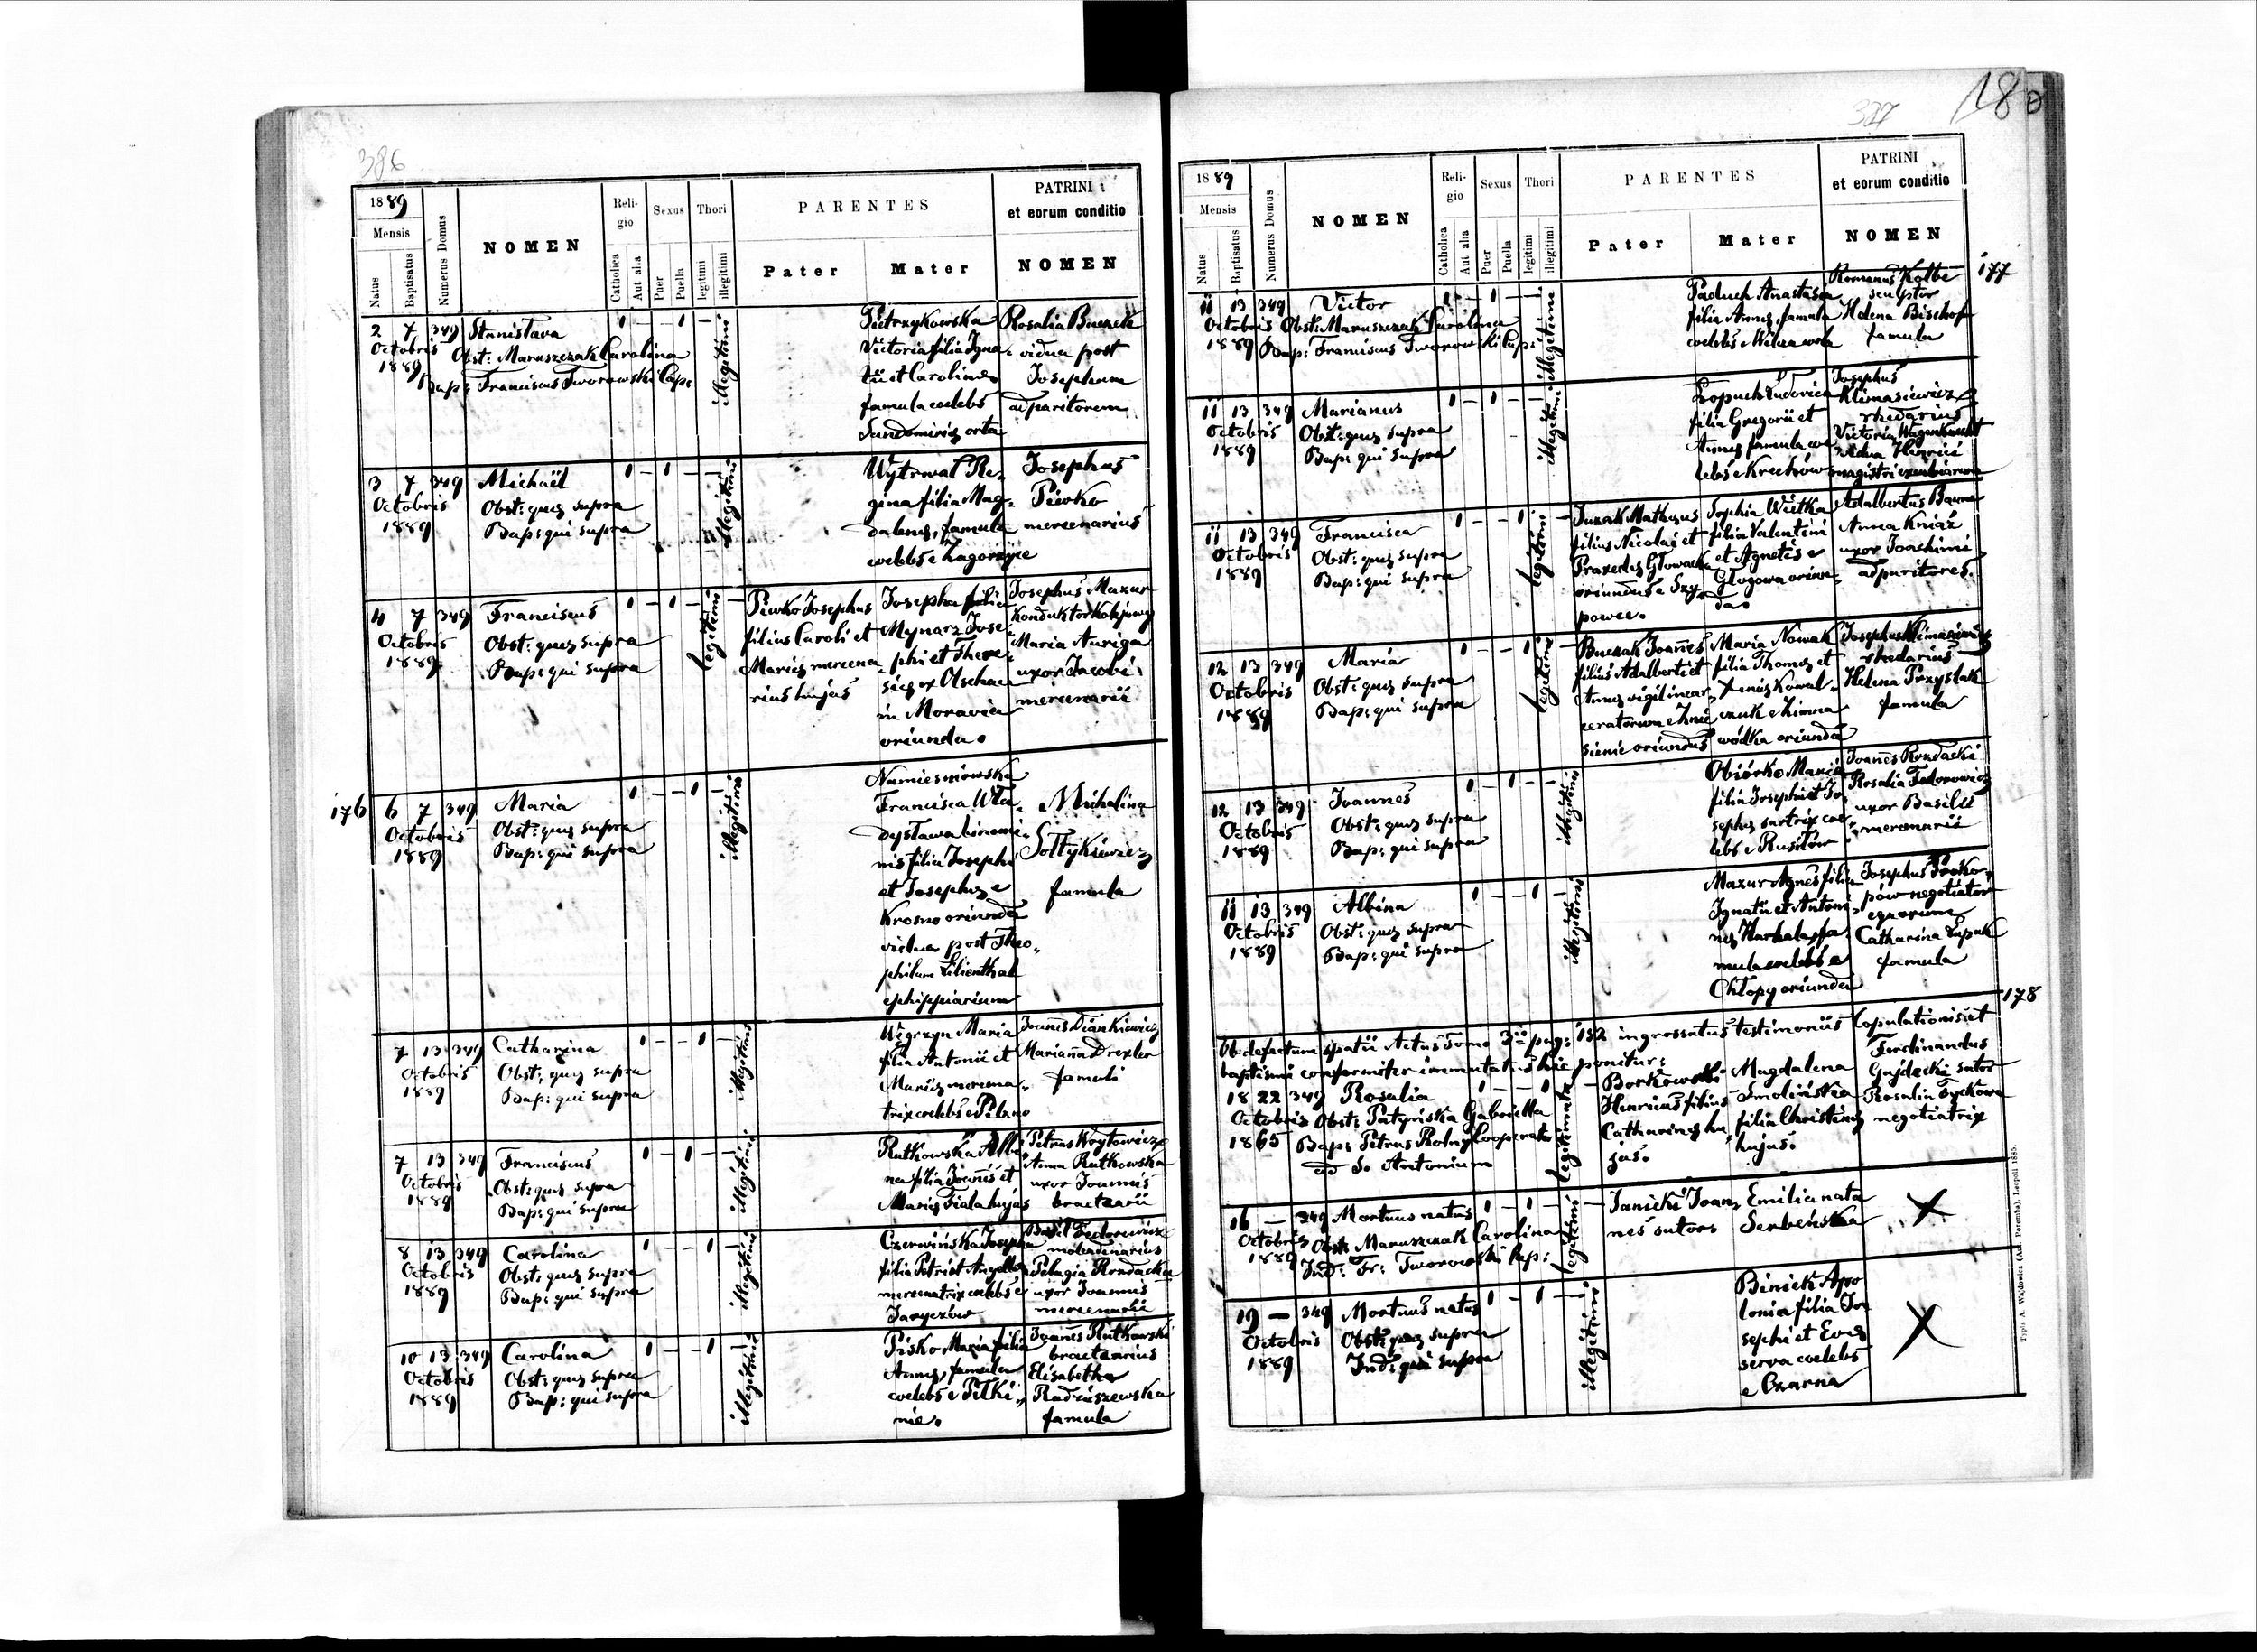 386
1889
Mensis
Natus
Baptisatus
Numerus Domus
NOMEN
Reli-
gio
Catholica
Aut alia
Sexus
Puer
Puella
Thori
legitimi
illegitimi
PARENTES
Pater
Mater
PATRINI
et eorum conditio
NOMEN
2 7 349 Stanisłava
Octobris Obst: Maruszczak Carolina
1889 Bap: Franciscus Tworowski Cap:
1 - - 1 -
illegitimi
Pietrzykowska
Victoria filia Igna-
tii et Carolinæ
famula coelebs
Sandomiriæ orta
Rosalia Buczek
vidua post
Josephum
adparitorem
3 7 349 Michaël
Octobris Obst: quæ supra
1889 Bap: qui supra
1 - 1 - -
illegitimi
Wytrwał Re-
gina filia Mag-
dalenæ, famula
coelebs e Zagorzyce
Josephus
Piwko
mercenarius
4 7 349 Franciscus
Octobris Obst: quæ supra
1889 Bap: qui supra
1 - 1 - -
legitimi
Piwko Josephus
filius Caroli et
Mariæ mercena
rius hujus
Josepha filia
Mynarz Jose-
phi et There-
siæ ex Olschan
in Moravia
oriunda.
Josephus Mazur
Konduktor Kolejowy
Maria Auriga
uxor Jacobi
mercenarii
176
6 7 349 Maria
Octobris Obst: quæ supra
1889 Bap: qui supra
1 - - 1 -
illegitimi
Namiesniowska
Francisca Wła-
dysława binomi-
nis filia Josephi
et Josephæ e
Krosno oriunda
vidua post Theo-
philum Lilienthal
ephippiarium
Michalina
Sołtykiewicz
famula
7 13 349 Catharina
Octobris Obst: quæ supra
1889 Bap: qui supra
1 - - 1 -
illegitimi
Węgrzyn Maria
filia Antonii et
Mariæ mercena-
trix coelebs e Pilzno
Joannes Diankiewicz
Marianna Drexler
famuli
7 13 349 Franciscus
Octobris Obst: quæ supra
1889 Bap: qui supra
1 - 1 - -
illegitimi
Rutkowska Albi
na filia Joannis et
Mariæ Fiala hujus
Petrus Krytowicz
Anna Rutkowska
uxor Joannis
bractearii
8 13 349 Carolina
Octobris Obst: quæ supra
1889 Bap: qui supra
1 - - 1 -
illegitimi
Czerwińska Josepha
filia Petri et Angelæ
mercenatrix coelebs e
Jaryczów
Basil Fedorowicz
molendinarius
Pelagia Rondacka
uxor Joannis
mercenarii
10 13 349 Carolina
Octobris Obst: quæ supra
1889 Bap: qui supra
1 - - 1 -
illegitimi
Pisko Maria filia
Annæ, famula
coelebs e Pełki-
nie.
Joannes Rutkowski
bractearius
Elisabetha
Radziszewska
famula
180
1889
Mensis
Natus
Baptisatus
Numerus Domus
NOMEN
Reli-
gio
Catholica
Aut alia
Sexus
Puer
Puella
Thori
legitimi
illegitimi
PARENTES
Pater
Mater
PATRINI
et eorum conditio
NOMEN
177
11 13 349 Victor
Octobris Obst: Maruszczak Carolina
1889 Bap: Franciscus Tworowski Cap:
1 - 1 - -
illegitimi
Paduch Anastasia
filia Annæ, famula
coelebs e Wilcza wola
Romanus Kolbe
sculptor
Helena Bischof
famula
11 13 349 Marianus
Octobris Obst: quæ supra
1889 Bap: qui supra
1 - 1 - -
illegitimi
Łopuch Ludovica
filia Gregorii et
Annæ famula coe
lebs e Krechów
Josephus
Klimasiewicz
rhedarius
Victoria Wagenknecht
vidua Henrici
magistri excubiarum
11 13 349 Francisca
Octobris Obst: quæ supra
1889 Bap: qui supra
1 - - 1 -
legitimi
Juzak Mathæus
filius Nicolai et
Praxedæ Głowacka
oriundus e Szy-
powce.
Sophia Wiitka
filia Valentini
et Agnetis e
Głogowa oriun-
da.
Adalbertus Baum
Anna Kniaź
uxor Joachimi
adparitores.
12 13 349 Maria
Octobris Obst: quæ supra
1889 Bap: qui supra
1 - - 1 -
legitimi
Buczak Joannes
filius Adalberti et
Annæ vigil incar-
ceratorum e Znie
sienie oriundus
Maria Nowak
filia Thomæ et
Xeniæ Kowal-
czuk e Zimna
wódka oriunda
Josephus Klimasiewicz
rhedarius
Helena Przystak
famula
12 13 349 Joannes
Octobris Obst: quæ supra
1889 Bap: qui supra
1 - 1 - -
illegitimi
Obiórko Maria
filia Josephi et Jo-
sephæ sartrix coe-
lebs e Rusiłów
Joannes Rondacki
Rosalia Fedorowicz
uxor Basilii
mercenarii
11 13 349 Albina
Octobris Obst: quæ supra
1889 Bap: qui supra
1 - - 1 -
illegitimi
Mazur Agnes filia
Ignatii et Antoni-
næ Harhala, fa-
mula coelebs e
Chłopy oriunda
Josephus Proko-
pów negotiator
equorum
Catharina Łupak
famula
178
Ob defectum spatii Actus Tomo 3io pag: 132 ingrossatus testimoniis Copulationis et
baptismi conformiter immutatus hic ponitur:
18 22 349 Rosalia
Octobris Obst: Patyńska Gabriella
1865 Bap: Petrus Rolny Cooperator
ad S. Antonium
1 - - 1 -
Legitimata
Borkowski
Henricus filius
Catharinæ hu-
jus.
Magdalena
Smolińska
filia Christinæ
hujus.
Ferdinandus
Gajdecki sutor
Rosalia Tyckowa
negotiatrix
16 - 349 Mortuus natus
Octobris Obst: Maruszczak Carolina
1889 Ind: Fr: Tworowski Cap:
1 - 1 -
legitimi
Janicki Joan-
nes sutor
Emilia nata
Serbeńska
X
19 - 349 Mortuus natus
Octobris Obst: quæ supra
1889 Ind: qui supra
1 - 1 -
illegitimi
Biniek Apo
lonia filia Jo-
sephi et Evæ
serva coelebs
e Czarna
X
Typis A. Wajdowicz (Ant. Poremba). Leopoli 1885.